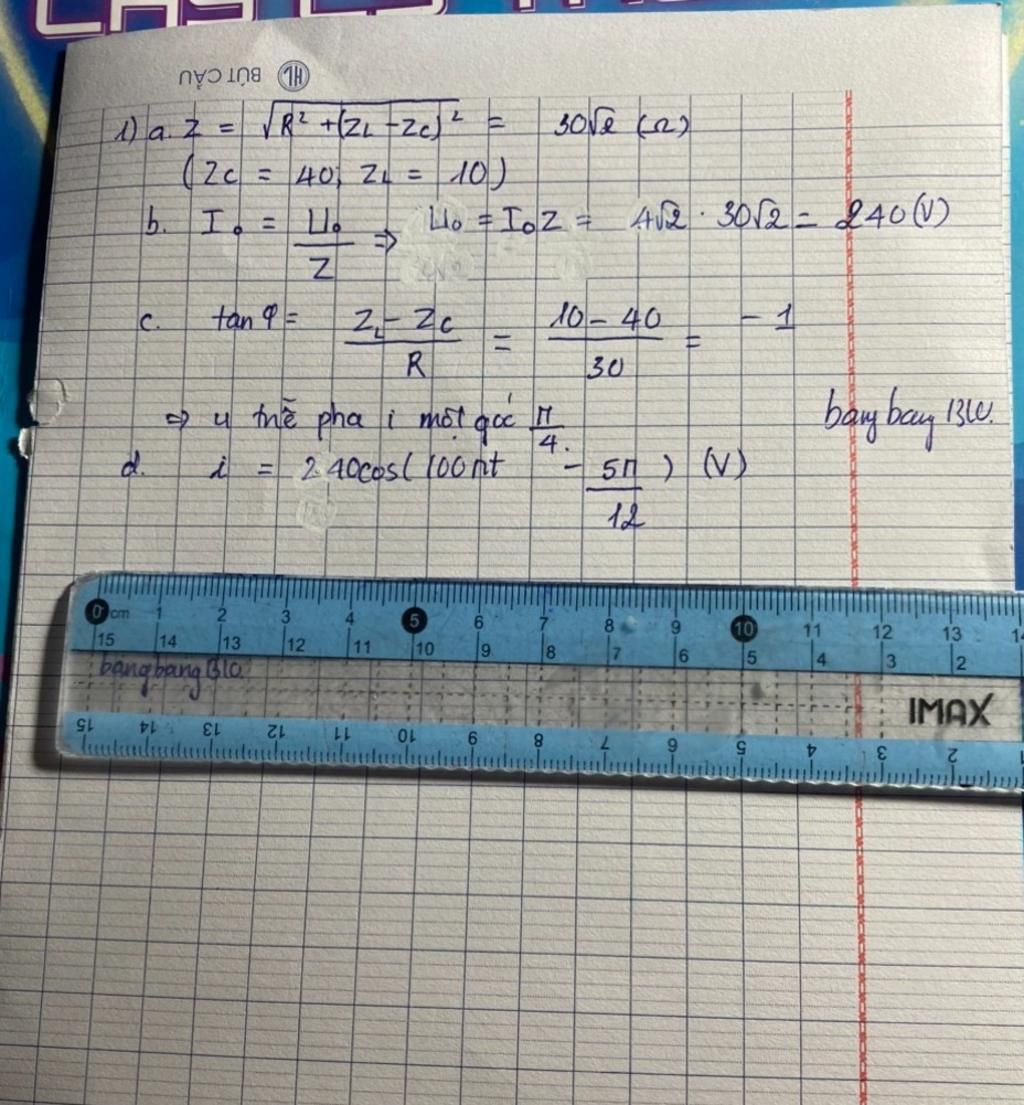 BÚT CẦU HL
1) a. Z = √R² + (ZL - ZC)² = 30√2 (Ω)
(ZC = 40; ZL = 10)
b. I₀ = U₀/Z ⇒ U₀ = I₀Z = 4√2 · 30√2 = 240 (V)
c. tan φ = ZL - ZC / R = 10 - 40 / 30 = - 1
⇒ u trễ pha i một góc π/4.
bangbang BLU.
d. i = 240cos(100πt - 5π/12) (V)
0 cm 1 2 3 4 5 6 7 8 9 10 11 12 13 14
15 14 13 12 11 10 9 8 7 6 5 4 3 2
bangbang BLU
IMAX
15 14 13 12 11 10 9 8 7 6 5 4 3 2